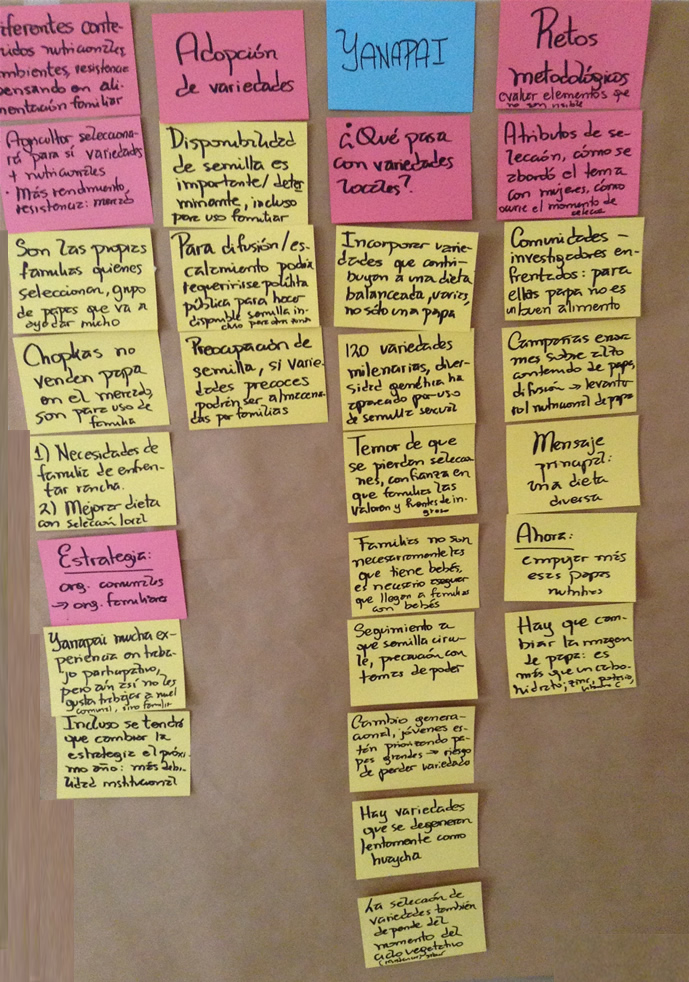 iferentes conte-
nidos nutricionales,
mbientes, resistencia
pensando en ali-
mentación familiar
Agricultor selecciona-
rá para sí variedades
+ nutricionales
· Más rendimiento,
resistencia: mercado
Son las propias
familias quienes
seleccionan, grupo
de papas que va a
ayudar mucho
Chopkas no
venden papa
en el mercado,
son para uso de
familia
1) Necesidades de
familia de enfren-
tar rancha.
2) Mejorar dieta
con selección local
Estrategia:
org. comunales
→ org. familiares
Yanapai mucha ex-
periencia en traba-
jo participativo,
pero aún así no les
gusta trabajar a nivel
comunal, sino familiar
Incluso se tendrá
que cambiar la
estrategia el próxi-
mo año: más debi-
lidad institucional
Adopción
de variedades
Disponibilidad
de semilla es
importante/deter
minante, incluso
para uso familiar
Para difusión/es-
calamiento podría
requerirse política
pública para hacer
disponible semilla in-
cluso para otra zona
Preocupación de
semilla, si varie-
dades precoces
podrán ser almacena-
das por familias
YANAPAI
¿Qué pasa
con variedades
locales?
Incorporar varie-
dades que contri-
buyan a una dieta
balanceada, varias,
no sólo una papa
120 variedades
milenarias, diver-
sidad genética ha
aparecido por uso
de semilla sexual
Temor de que
se pierdan seleccio
nes, confianza en
que familias las
valoran y fuentes de in-
greso
Familias no son
necesariamente las
que tiene bebés,
es necesario asegurar
que llegan a familias
con bebés
Seguimiento a
qué semilla circu-
le, precaución con
temas de poder
Cambio genera-
cional, jóvenes es-
tán priorizando pa-
pas grandes → riesgo
de perder variedad
Hay variedades
que se degeneran
lentamente como
huaycha
La selección de
variedades también
depende del
momento del
ciclo vegetativo
Retos
metodológicos
evaluar elementos que
no son visible
Atributos de se-
lección, cómo se
abordó el tema
con mujeres, cómo
ocurre el momento de
Comunidades –
investigadores en-
frentados: para
ellas papa no es
un buen alimento
Campañas enor
mes sobre alto
contenido de papa,
difusión → levantar
rol nutricional de papa
Mensaje
principal:
una dieta
diversa
Ahora:
empujar más
esas papas
nutritivas
Hay que cam-
biar la imagen
de papa: es
más que un carbo-
hidrato; zinc, potasio,
vitamina C